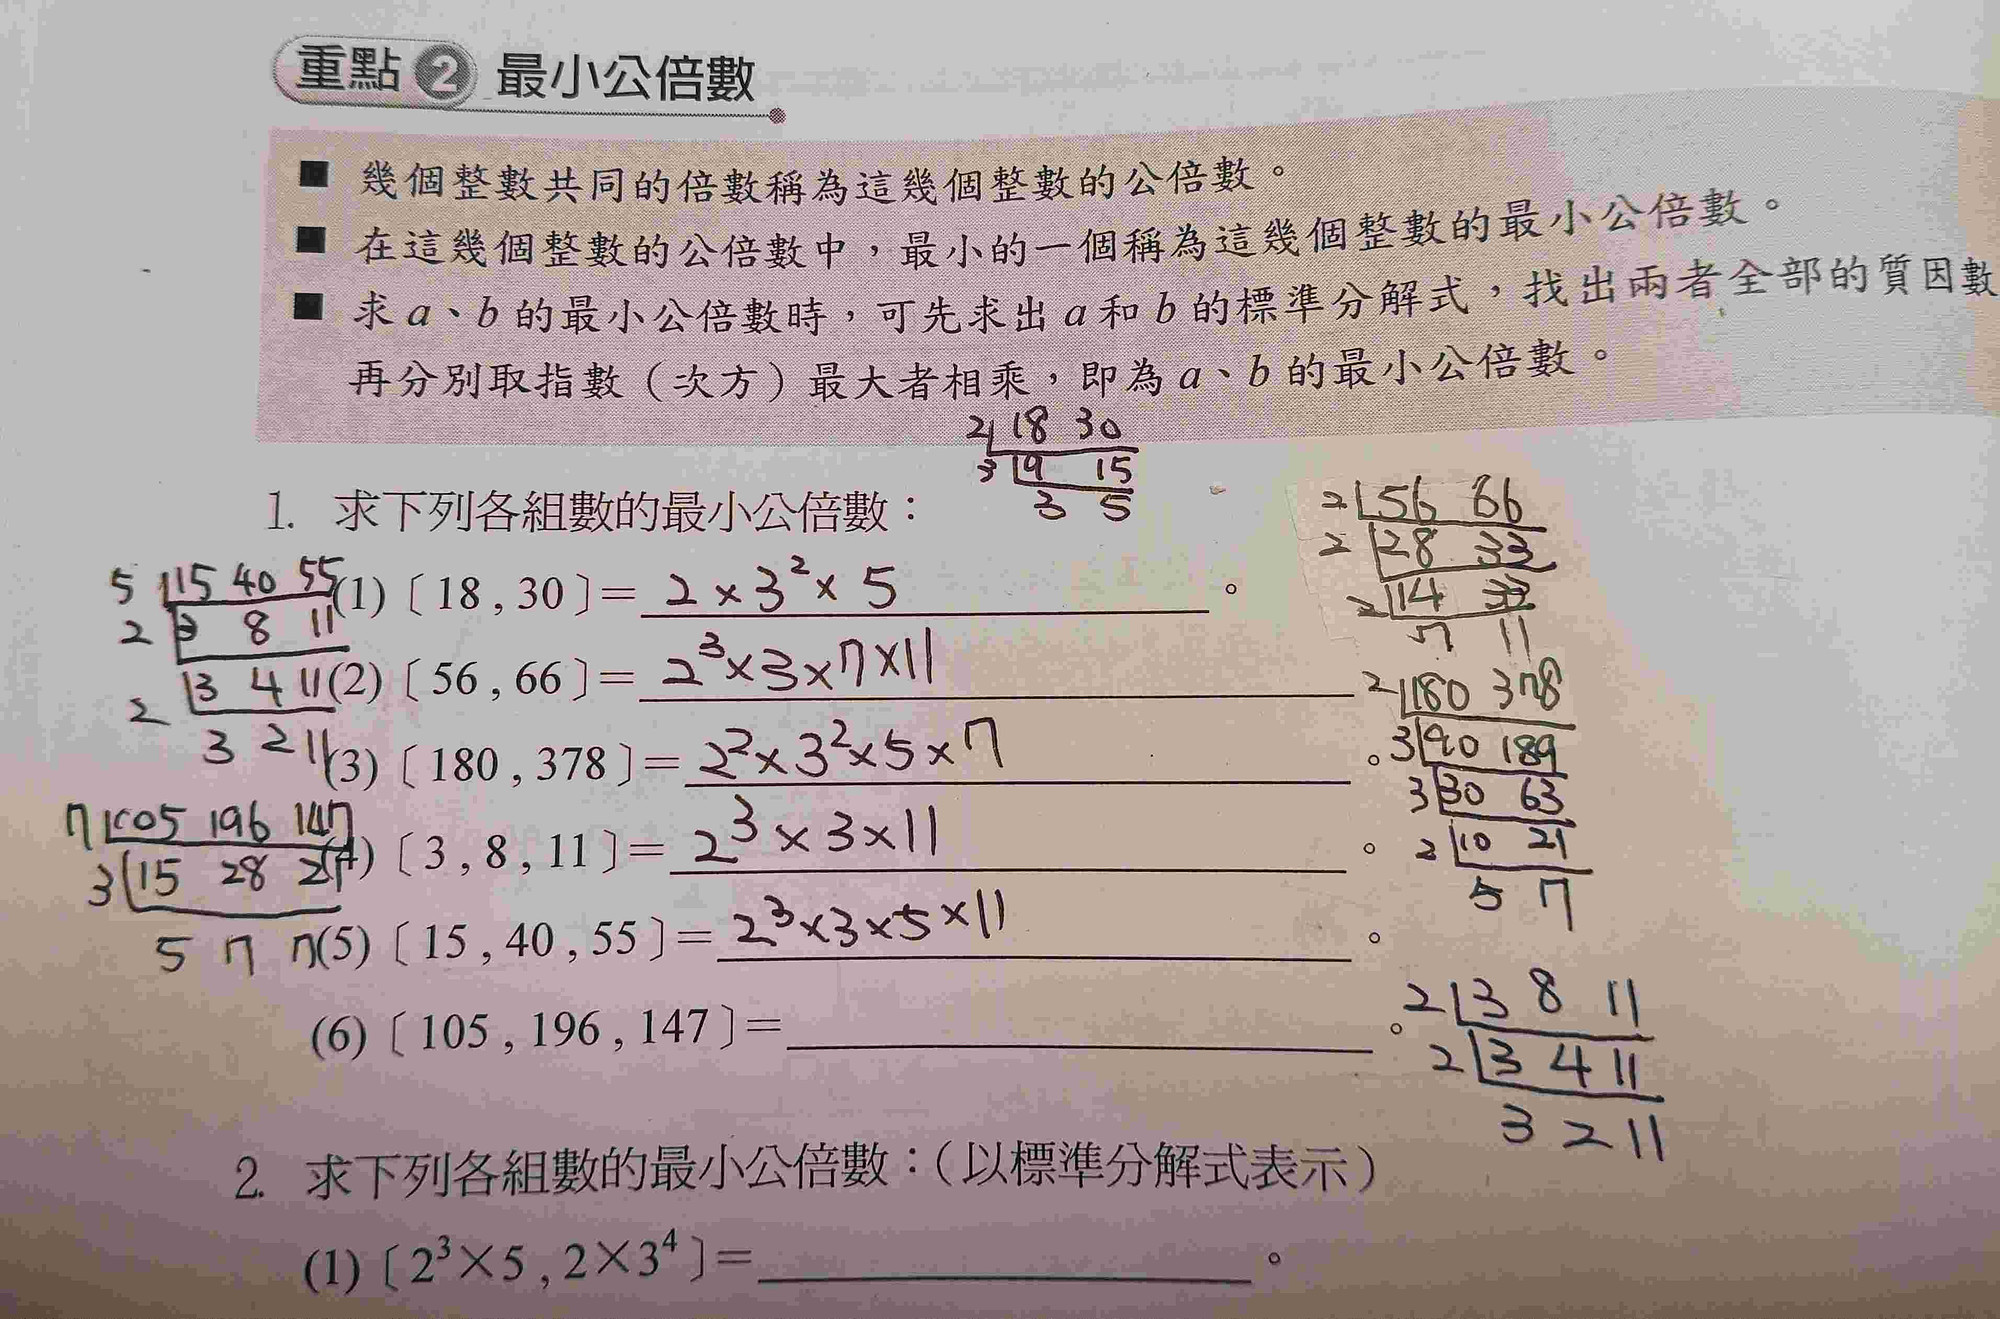 重點 2 最小公倍數
■ 幾個整數共同的倍數稱為這幾個整數的公倍數。
■ 在這幾個整數的公倍數中，最小的一個稱為這幾個整數的最小公倍數。
■ 求 a、b 的最小公倍數時，可先求出 a 和 b 的標準分解式，找出兩者全部的質因數
再分別取指數（次方）最大者相乘，即為 a、b 的最小公倍數。
2 18 30
3 9 15
3 5
1. 求下列各組數的最小公倍數：
(1)〔18 , 30〕= 2 × 3² × 5 。
(2)〔56 , 66〕= 2³ × 3 × 7 × 11
(3)〔180 , 378〕= 2² × 3² × 5 × 7 。
(4)〔3 , 8 , 11〕= 2³ × 3 × 11 。
(5)〔15 , 40 , 55〕= 2³ × 3 × 5 × 11 。
(6)〔105 , 196 , 147〕= 。
5 15 40 55
2 3 8 11
2 3 4 11
3 2 11
7 105 196 147
3 15 28 21
5 7 7
2 56 66
2 28 33
2 14 33
7 11
2 180 378
3 90 189
3 30 63
2 10 21
5 7
2 3 8 11
2 3 4 11
3 2 11
2. 求下列各組數的最小公倍數：（以標準分解式表示）
(1)〔2³×5 , 2×3⁴〕= 。